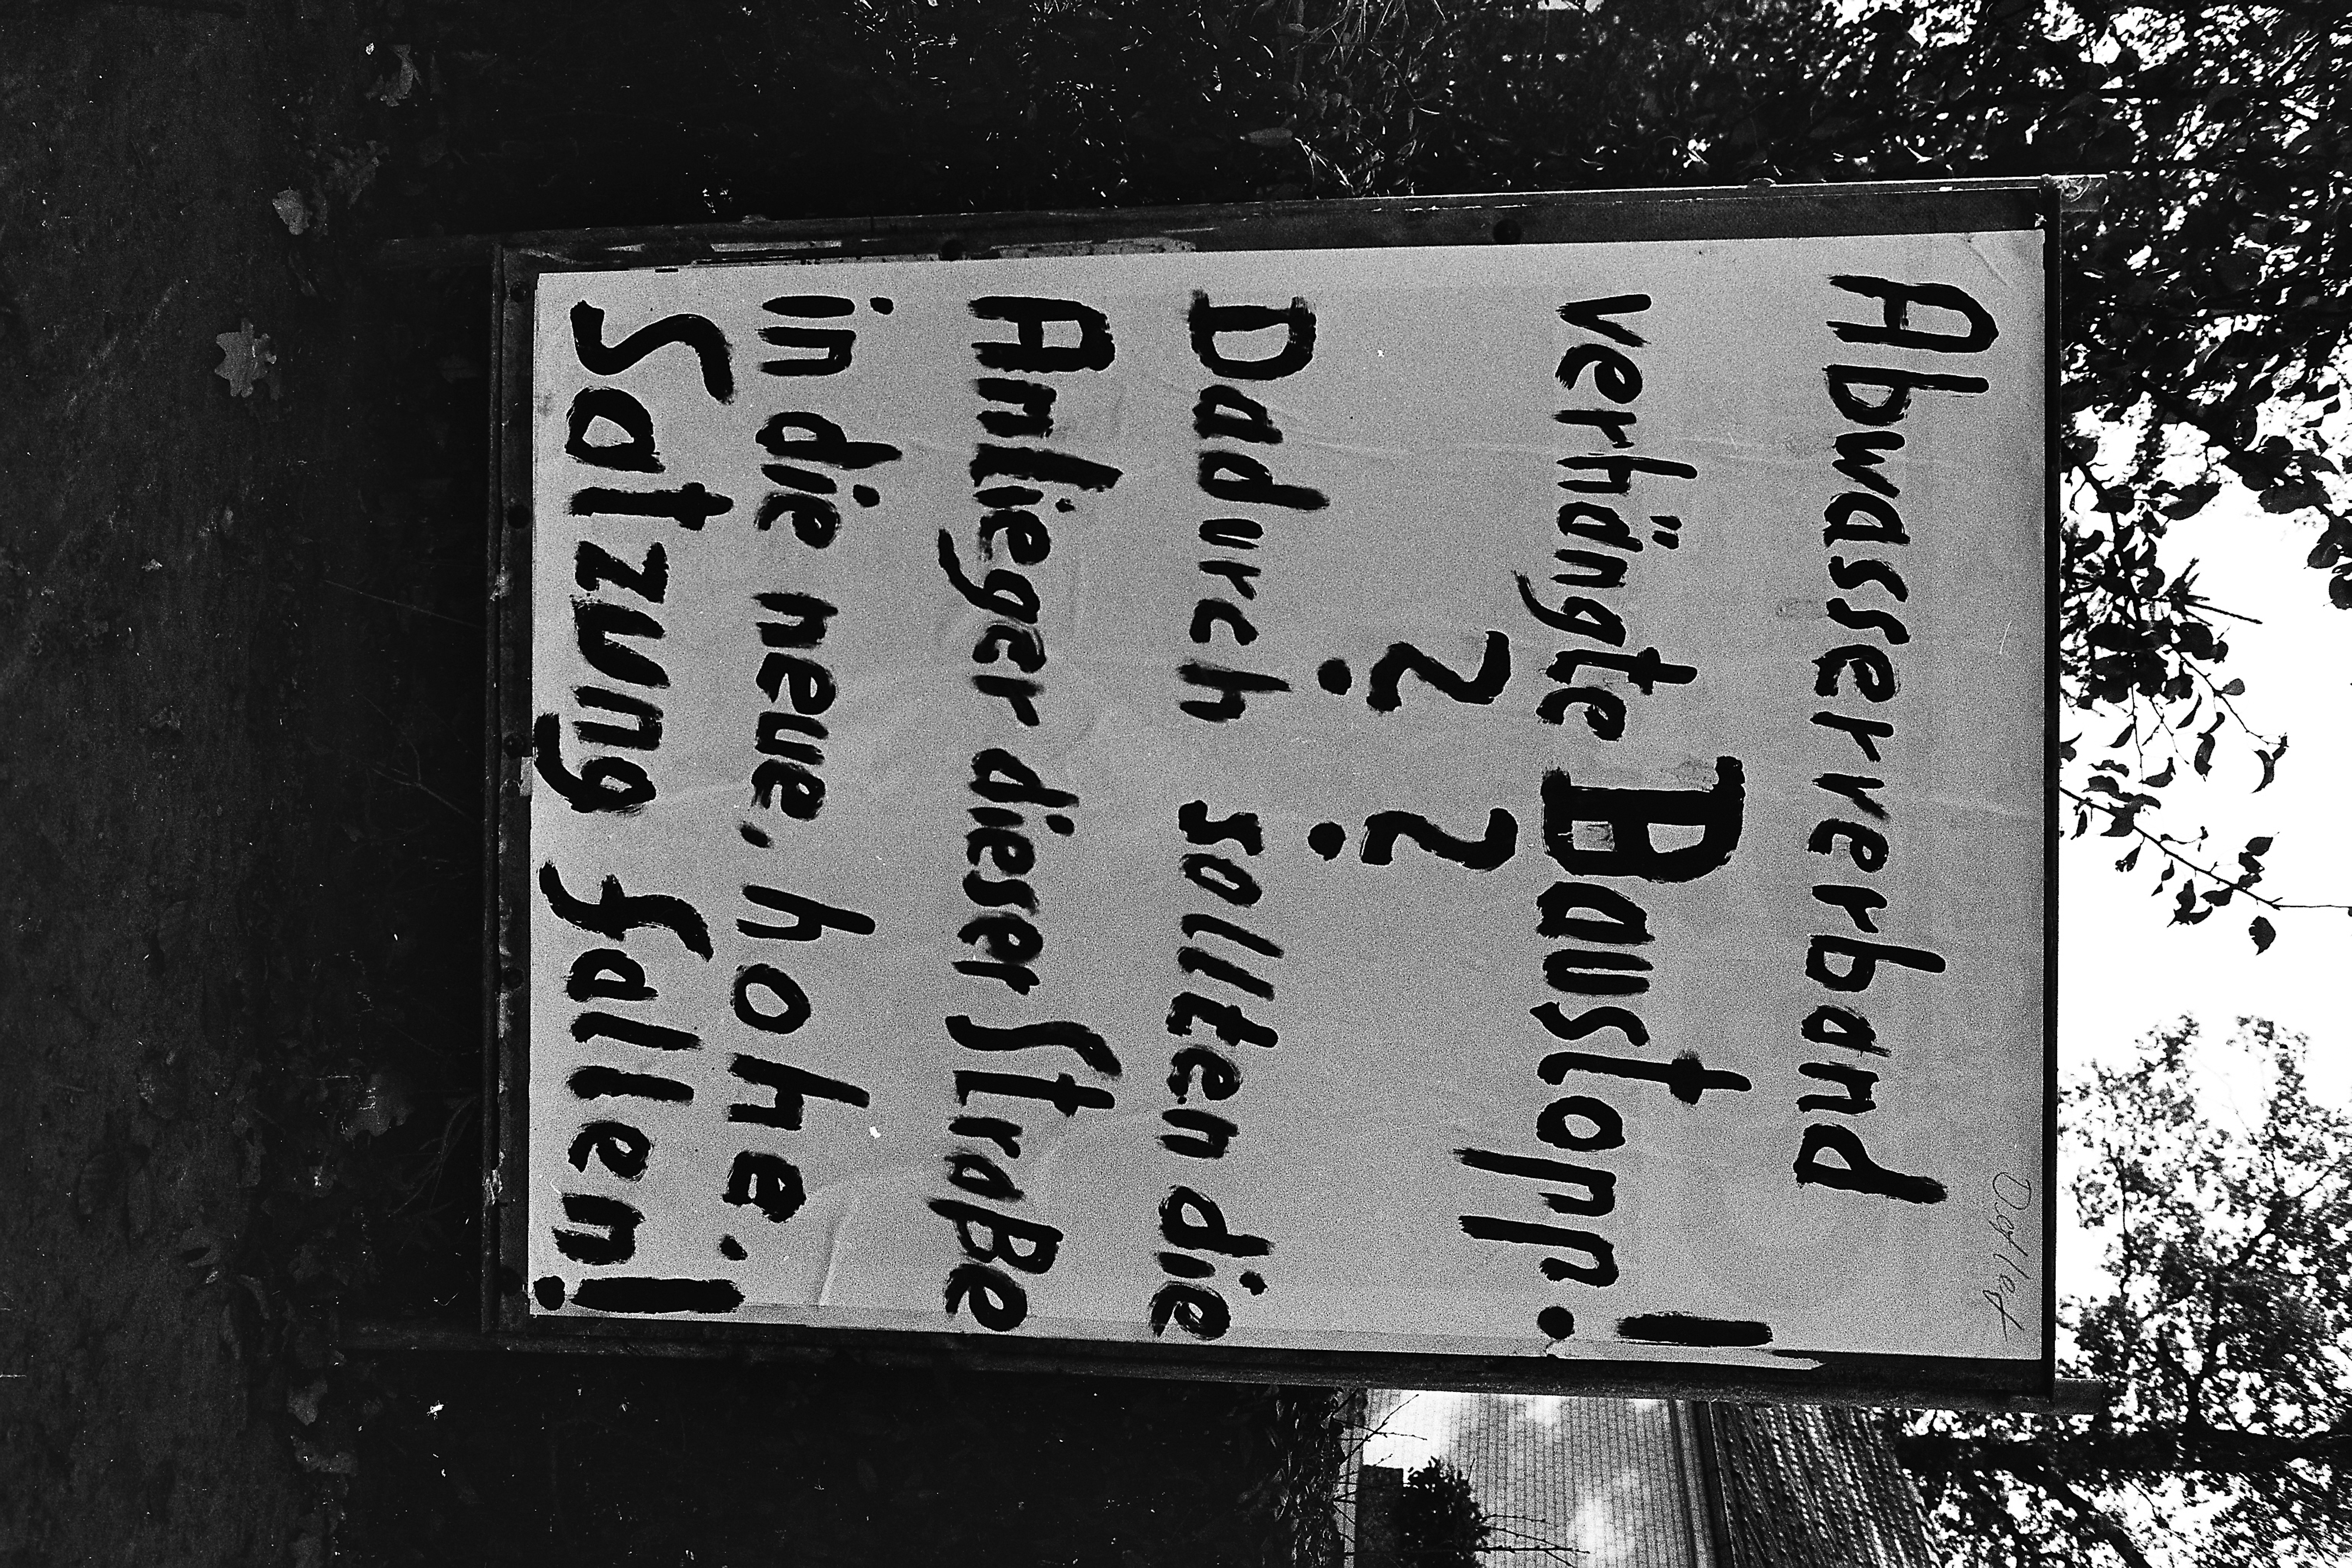 Abwasserverband
verhängte Baustopp.!
? ?
Dadurch sollten die
Anlieger dieser Straße
in die neue, hohe.
Satzung fallen!